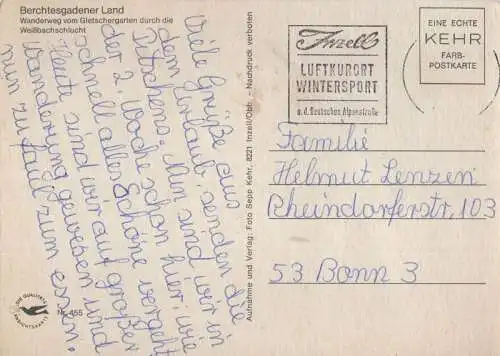 Berchtesgadener Land
Wanderweg vom Gletschergarten durch die
Weißbachschlucht
Viele Grüße aus
dem Urlaub, senden die
Pitschens. Nun sind wir in
der 2. Woche schon hier, wie
schnell alles Schöne vergeht.
Heute sind wir auf großer
Wanderung gewesen und
nun zu faul zum essen.
DIE QUALITÄTS
ANSICHTSKARTE
Nr. 455
Aufnahme und Verlag: Foto Sepp Kehr, 8221 Inzell/Obb. - Nachdruck verboten
Inzell
LUFTKURORT
WINTERSPORT
a.d. Deutschen Alpenstraße
EINE ECHTE
KEHR
FARB-
POSTKARTE
Familie
Helmut Lenzen
Rheindorferstr. 103
53 Bonn 3